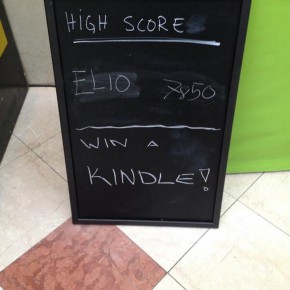 HIGH SCORE
ELIO 7850
WIN A
KINDLE!